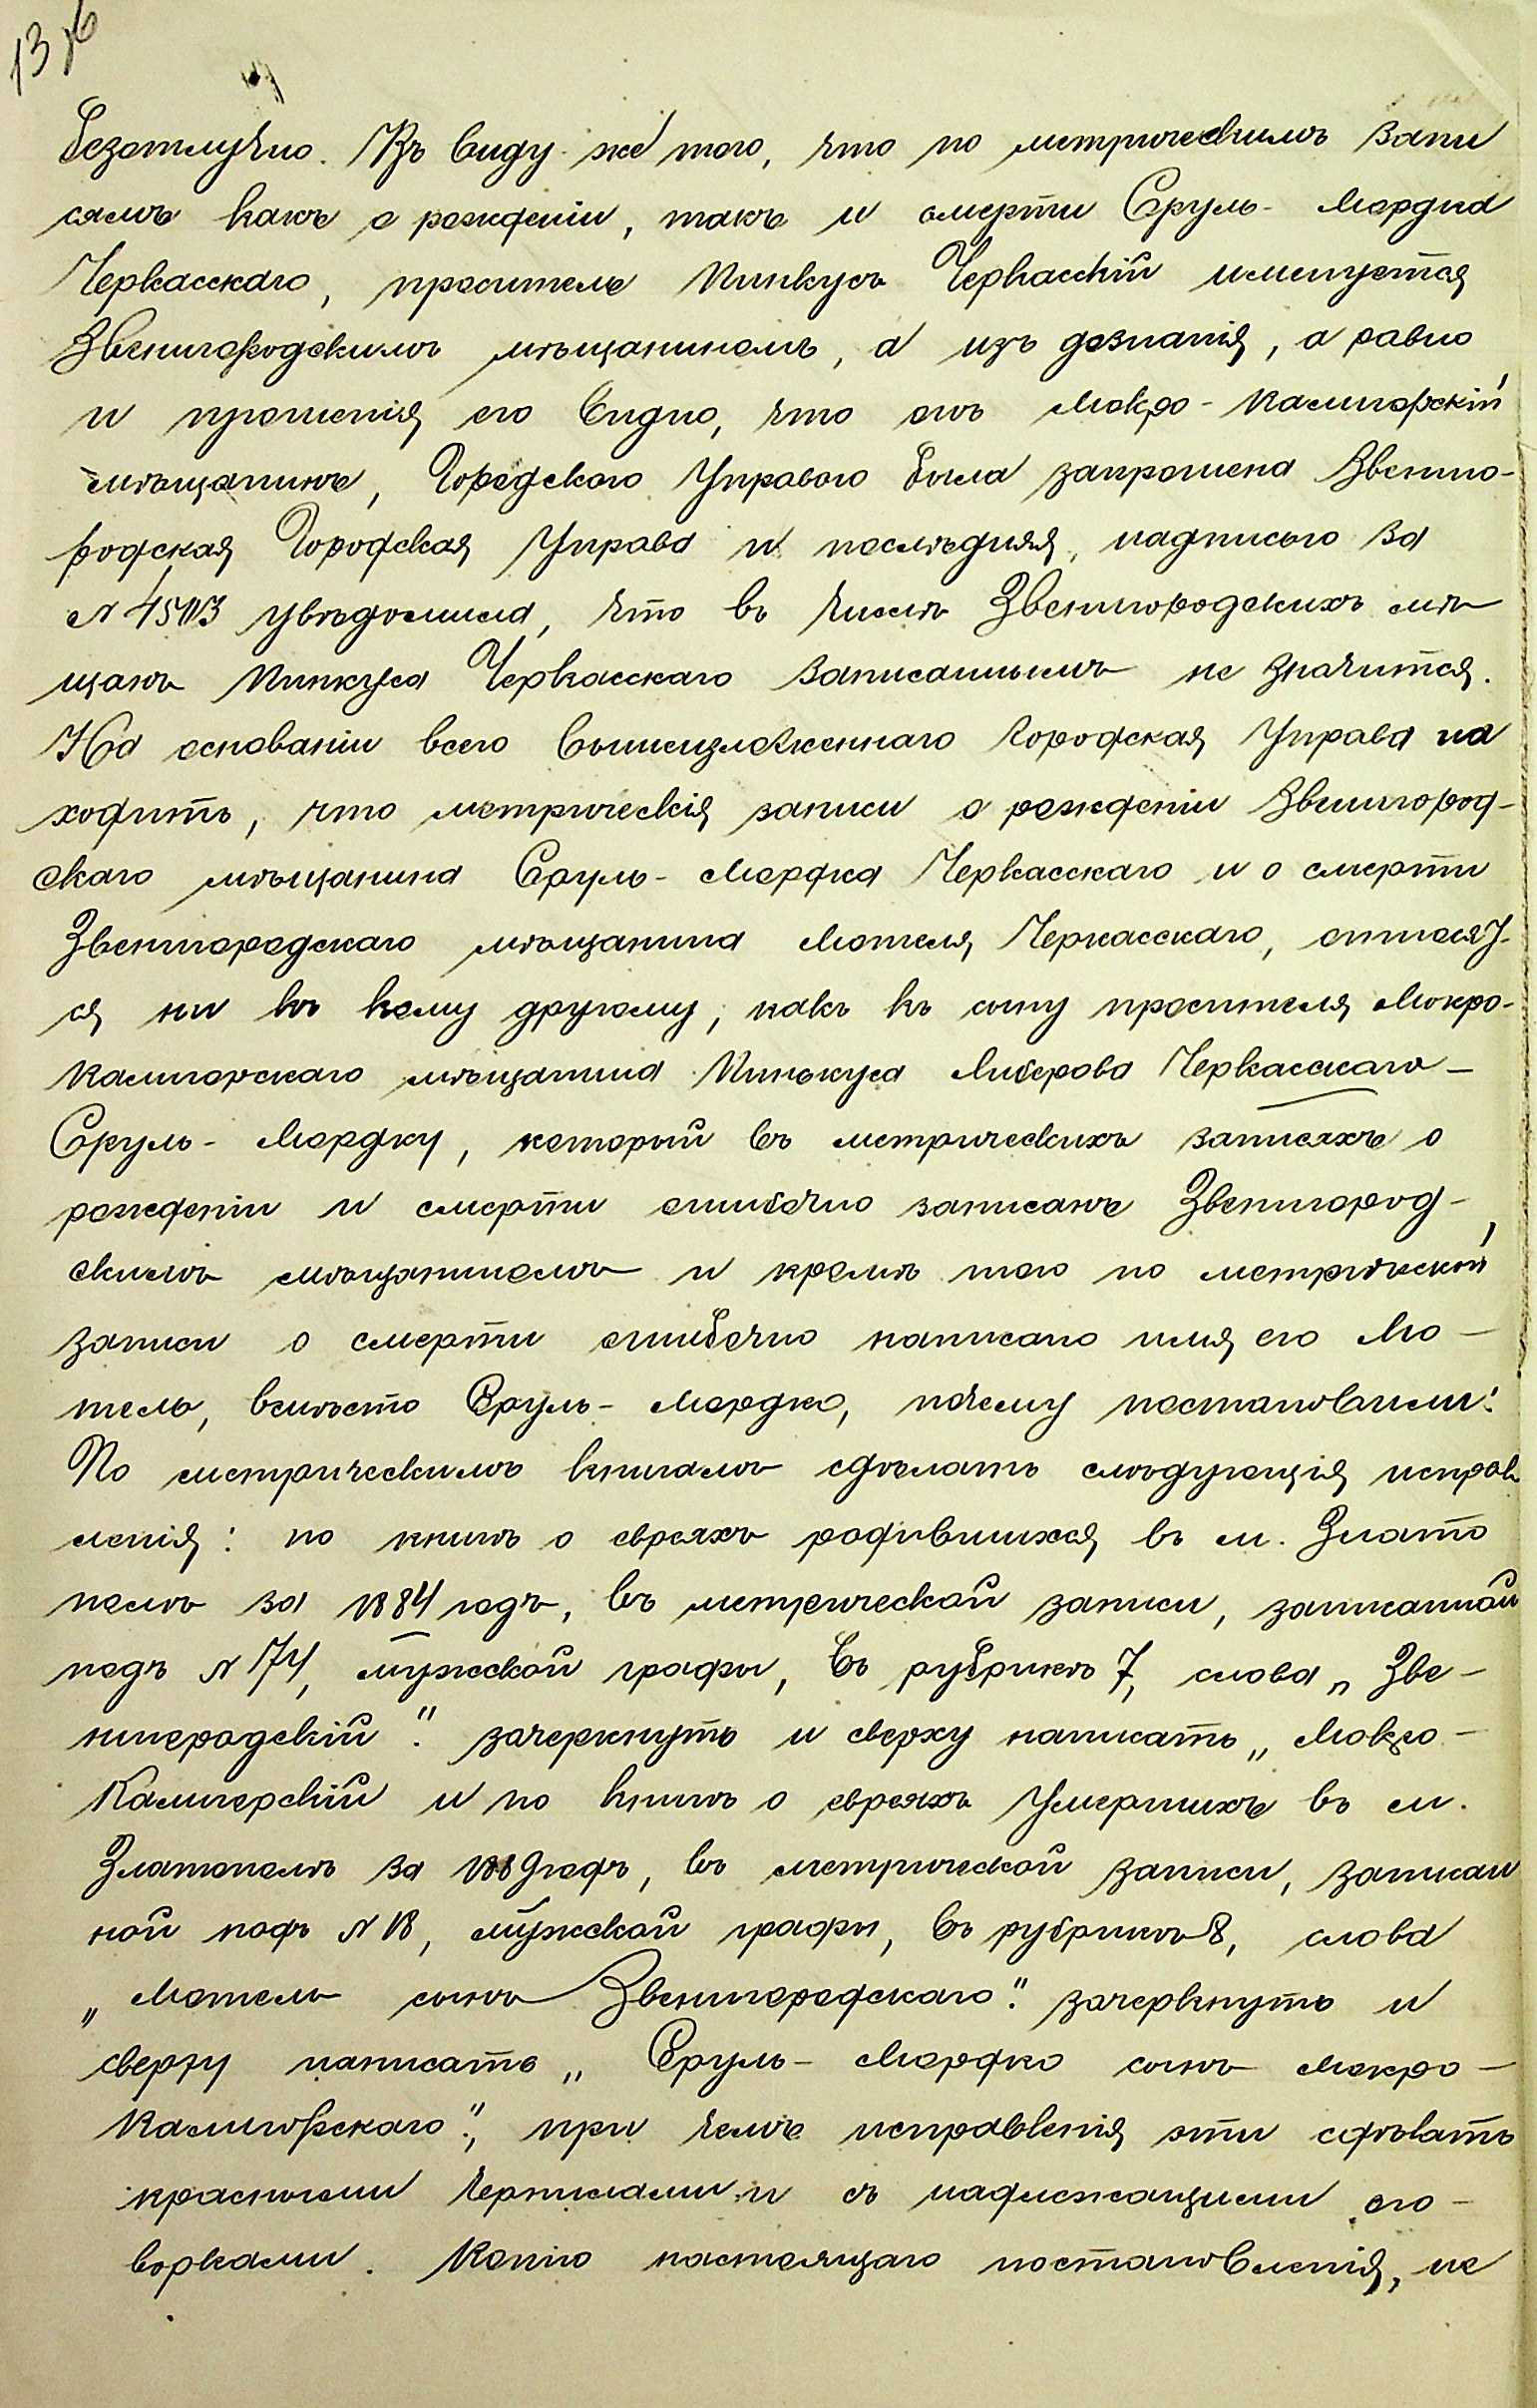 13 об
безотлучно. Въ виду же того, что по метрическимъ запи
сямъ какъ о рожденіи, такъ и смерти Сруль-Мордка
Черкасскаго, проситель Пинкусъ Черкасскій именуется
Звенигородскимъ мѣщаниномъ, а изъ дознанія, а равно
и прошенія его видно, что онъ Мокро-Калигорскій
мѣщанинъ, Городского Управою была запрошена Звениго-
родская Городская Управа и послѣдняя, надписью за
№ 4543 увѣдомила, что въ числѣ Звенигородскихъ мѣ
щанъ Пинкуса Черкасскаго записаннымъ не значится.
На основаніи всего вышеизложеннаго Городская Управа на
ходитъ, что метрическія записи о рожденіи Звенигород-
скаго мѣщанина Сруль-Мордка Черкасскаго и о смерти
Звенигородскаго мѣщанина Мотеля Черкасскаго, относят-
ся ни къ кому другому, какъ къ сыну просителя Мокро-
Калигорскаго мѣщанина Пинькуса Либерова Черкасскаго —
Сруль-Мордку, который въ метрическихъ записяхъ о
рожденіи и смерти ошибочно записанъ Звенигород-
скимъ мѣщаниномъ и кромѣ того по метрической
записи о смерти ошибочно написано имя его Мо-
тель, вмѣсто Сруль-Мордко, почему постановили:
По метрическимъ книгамъ сдѣлать слѣдующія исправ
ленія: по книгѣ о евреяхъ родившихся въ м. Злато
полѣ за 1884 годъ, въ метрической записи, записанной
подъ № 174, мужской графы, въ рубрикѣ 7, слова „Зве-
нигородскій". зачеркнуть и сверху написать „Мокро-
Калигорскій и по книгѣ о евреяхъ умершихъ въ м.
Златополѣ за 1889 годъ, въ метрической записи, записан
ной подъ № 18, мужской графы, въ рубрикѣ 8, слова
„Мотель сынъ Звенигородскаго". зачеркнуть и
сверху написать „Сруль-Мордко сынъ Мокро-
Калигорскаго", при чемъ исправленія эти сдѣлать
красными чернилами и съ надлежащими ого-
ворками. Копію настоящаго постановленія, не